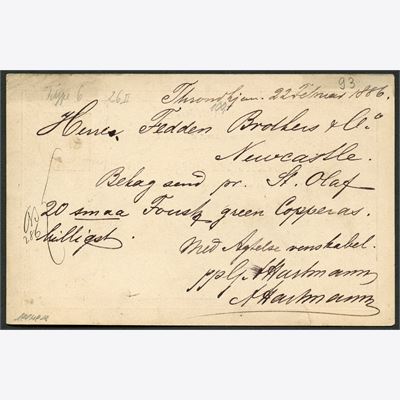 93
Type 6 26II
Throndhjem. 22 Februar 1886.
Herrer Fedden Brothers & Co
Newcastle.
Behag send pr. St. Olaf
20 smaa green Copperas.
billigst.
Med Agtelse venskabel.
ppG. A Hartmann
A Hartmann